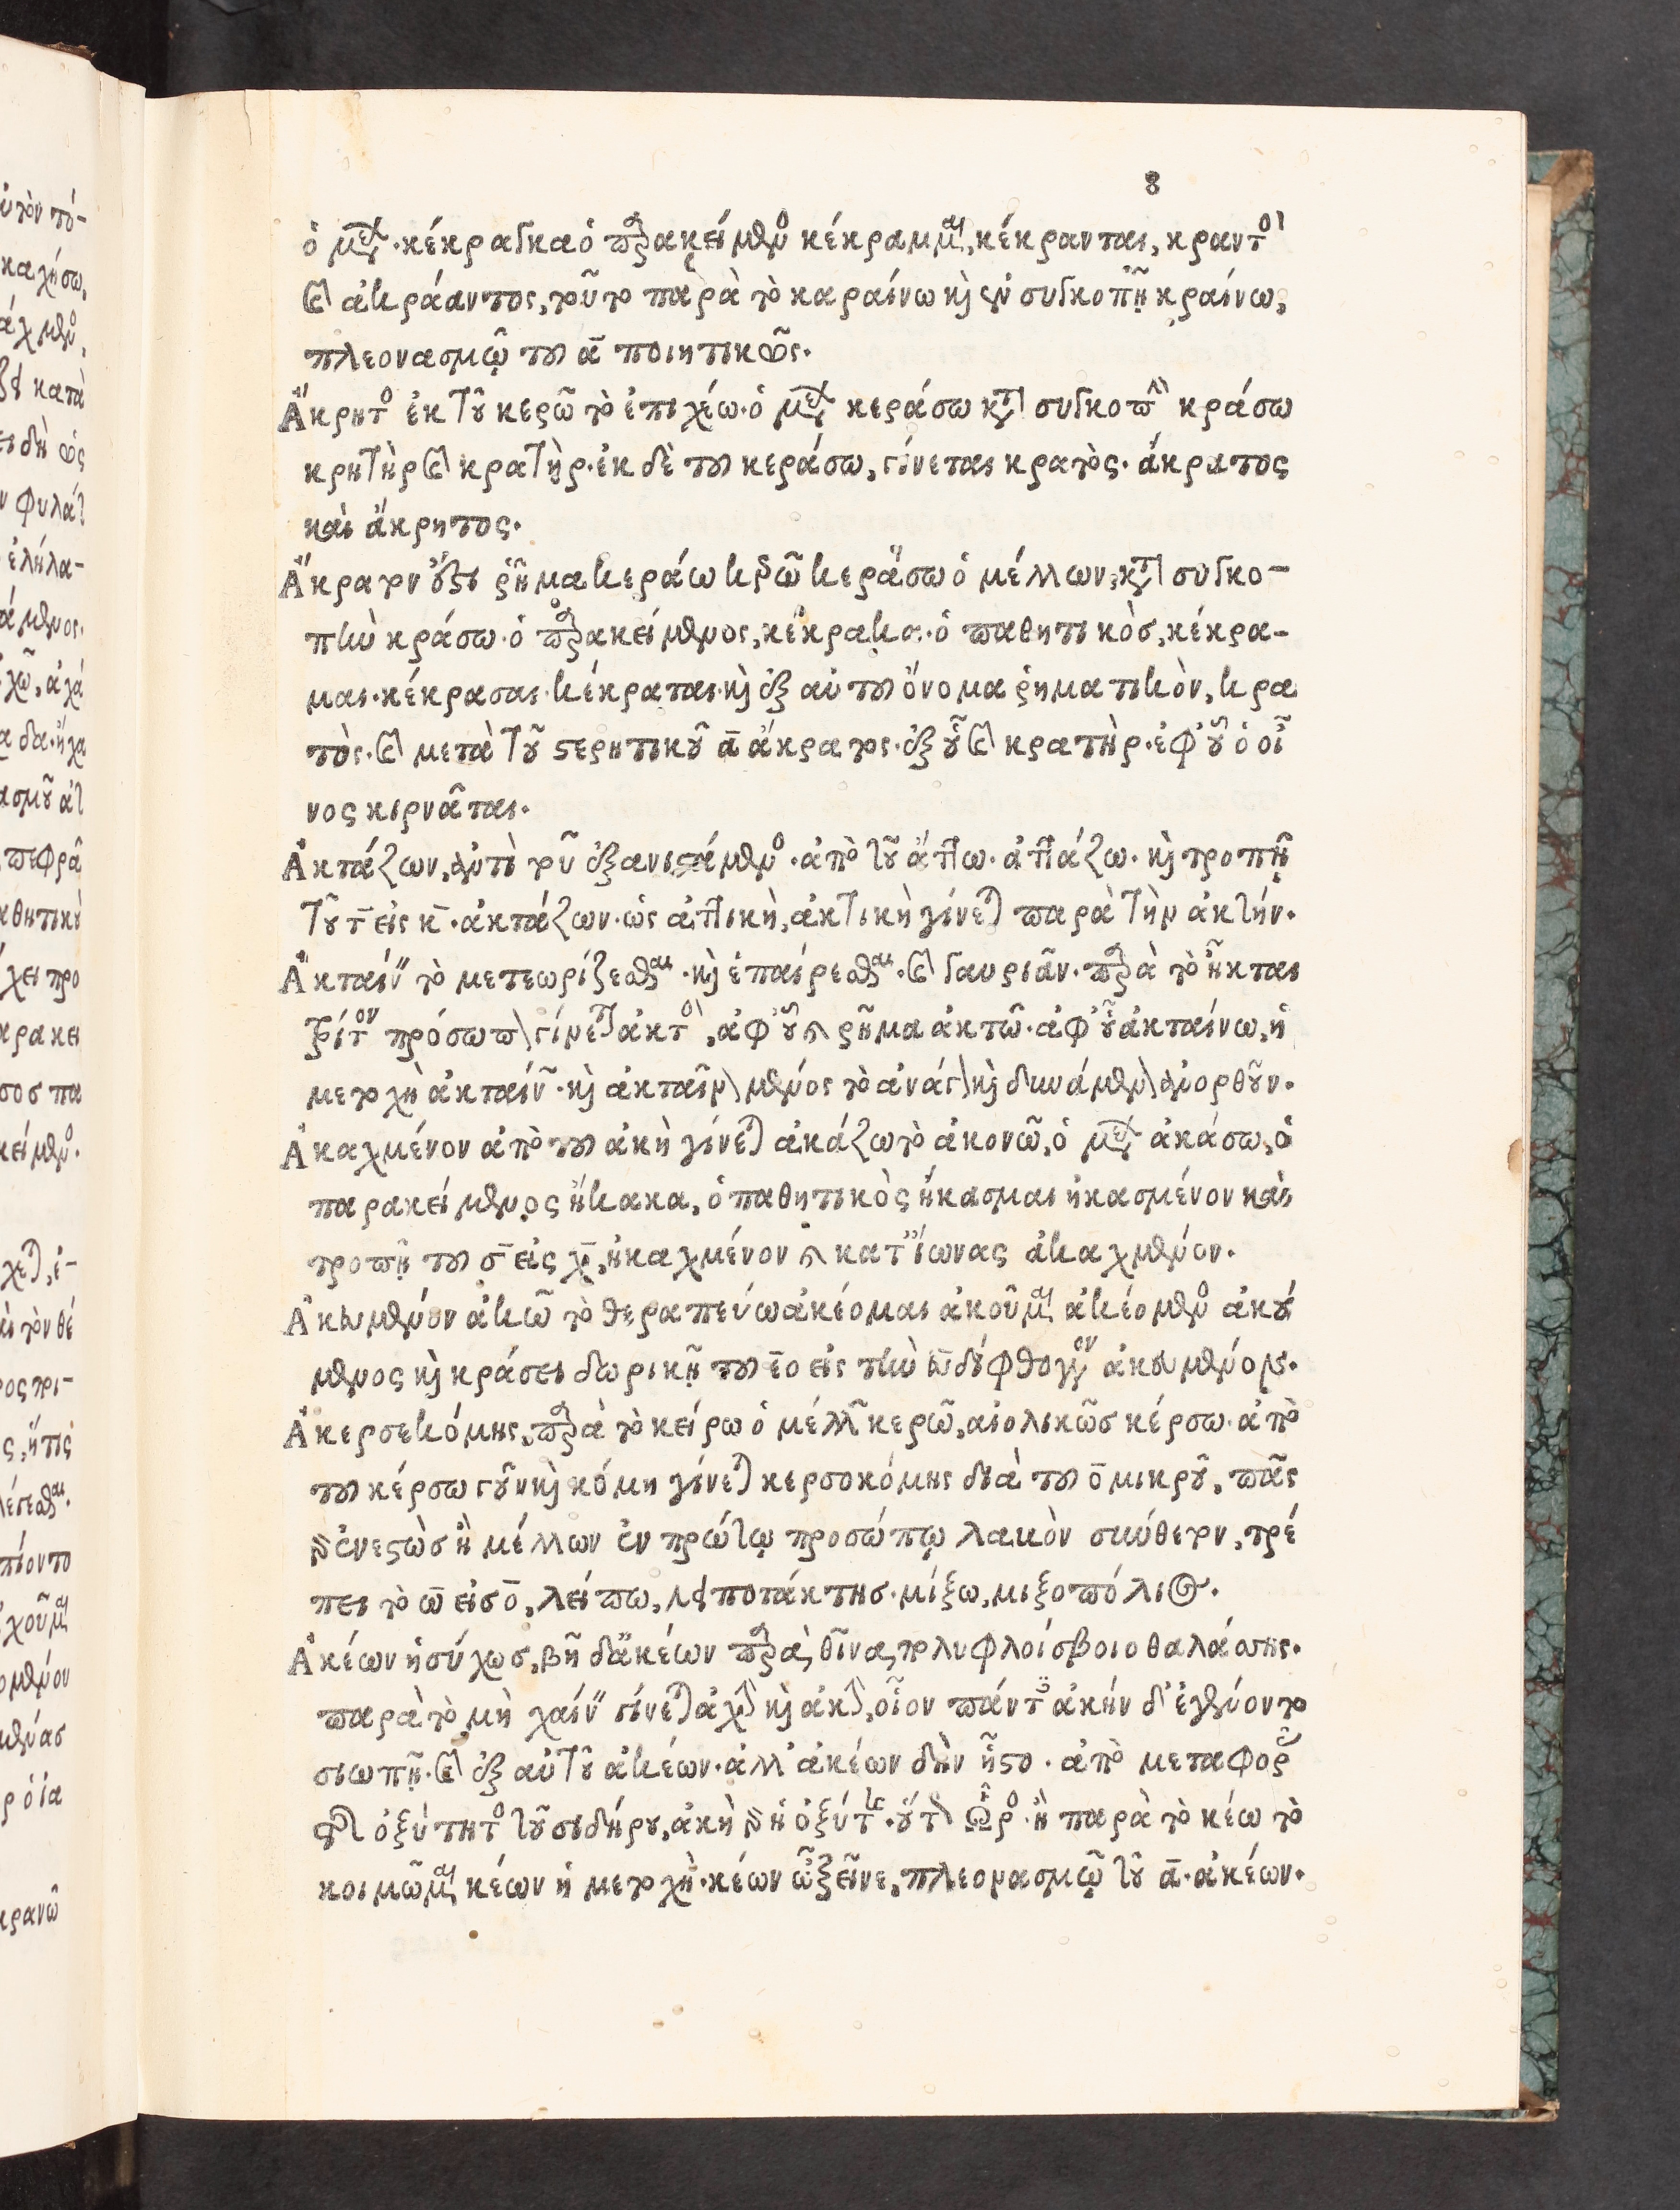 8
ὁ μελ· κέκραγκα ὁ παρακείμενος κέκραμμαι, κέκρανται, κραντὸς
καὶ ἀκράαντος, τοῦτο παρὰ τὸ καραίνω καὶ ἐν συγκοπῇ κραίνω,
πλεονασμῷ τοῦ α ποιητικῶς.
Ἄκρητος ἐκ τοῦ κερῶ τὸ ἐπιχέω· ὁ μελ κεράσω κατὰ συγκοπὴν κράσω
κρητὴρ καὶ κρατὴρ· ἐκ δὲ τοῦ κεράσω, γίνεται κρατὸς· ἄκρατος
καὶ ἄκρητος.
ῥῆμα κεράω κερῶ κεράσω ὁ μέλλων, κατὰ συγκο-
πὴν κράσω· ὁ παρακείμενος, κέκρακα· ὁ παθητικὸσ, κέκρα-
μαι· κέκρασαι· κέκραται· καὶ ἐξ αὐτοῦ ὄνομα ῥηματικὸν, κρα
τὸς· καὶ μετὰ τοῦ στερητικοῦ α ἄκρατος· ἐξ οὗ καὶ κρατὴρ· ἐφ' οὗ ὁ οἶ
νος κιρνᾶται.
Ἀκτάζων, ἀντὶ τοῦ ἐξανιστάμενος· ἀπὸ τοῦ ἄττω· ἀττάζω· καὶ τροπῇ
τοῦ τ εἰς κ· ἀκτάζων· ὡς ἀττικὴ, ἀκτικὴ γίνεται παρὰ τὴν ἀκτήν.
Ἀκταίνειν τὸ μετεωρίζεσθαι· καὶ ἐπαίρεσθαι· καὶ γαυριᾶν· παρὰ τὸ ἦκται
τρίτον πρόσωπον γίνεται ἀκτὸς, ἀφ' οὗ ῥῆμα ἀκτῶ· ἀφ' οὗ ἀκταίνω, ἡ
μετοχὴ ἀκταίνων· καὶ
Ἀκαχμένον ἀπὸ τοῦ ἀκὴ γίνεται ἀκάζω τὸ ἀκονῶ, ὁ μελ ἀκάσω, ὁ
παρακείμενος ἤκακα, ὁ παθητικὸς ἤκασμαι ἠκασμένον καὶ
τροπῇ τοῦ σ εἰς χ, ἠκαχμένον καὶ κατ' ἴωνας ἀκαχμένον.
Ἀκουμένον ἀκῶ τὸ θεραπεύω ἀκέομαι ἀκοῦμαι ἀκεόμενος ἀκού
μενος καὶ κράσει δωρικῇ τοῦ εο εἰς τὴν ου δίφθογγον ἀκουμένον.
Ἀκερσεκόμης, παρὰ τὸ κείρω ὁ μέλλων κερῶ, αἰολικῶσ κέρσω· ἀπὸ
τοῦ κέρσω γοῦν καὶ κόμη γίνεται κερσοκόμης διὰ τοῦ ο μικροῦ, πᾶς
γὰρ ἐνεστὼσ ἢ μέλλων ἐν πρώτῳ προσώπῳ λακὸν σκύθερν, τρέ
πει τὸ ω εἰσ ο, λείπω, λειποτάκτησ· μίξω, μιξοπόλιος.
Ἀκέων ἡσύχωσ, βῆ δ' ἀκέων παρὰ θῖνα πολυφλοίσβοιο θαλάσσης.
παρὰ τὸ μὴ χαίνειν γίνεται ἀχὴν καὶ ἀκὴν, οἷον πάντες ἀκὴν δ' ἐγένοντο
σιωπῇ· καὶ ἐξ αὐτοῦ ἀκέων· ἀλλ' ἀκέων δὴν ἧστο· ἀπὸ μεταφορᾶς
τῆς ὀξύτητος τοῦ σιδήρου, ἀκὴ γὰρ ἡ ὀξύτης· οὕτως Ὦρος· ἢ παρὰ τὸ κέω τὸ
κοιμῶμαι κέων ἡ μετοχὴ· κέων ὦ ξεῖνε, πλεονασμῷ τοῦ α· ἀκέων.